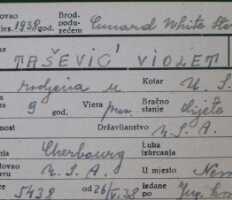 ovao
ijes. 1938 god. Brod. podu- zećem Cunard White Sta
TAŠEVIĆ VIOLET
rodjena u Kotar U. S.
9 god. Vjera prav. Bračno stanje dijete
nost Državljanstvo U.S.A.
Cherbourg Luka izkrcanja
tovao U.S.A. U mjesto
5438 od 26/V.38 izdane po